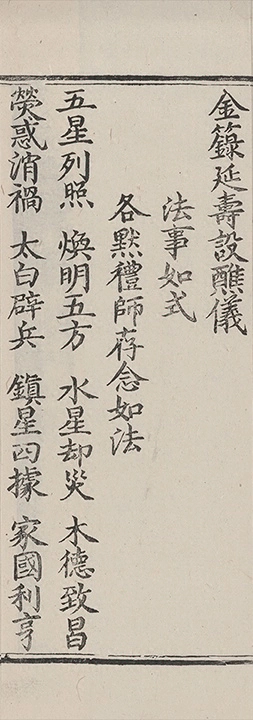 金籙延壽設醮儀
法事如式
各黙禮師存念如法
五星列照 煥明五方 水星却災 木德致昌
熒惑消禍 太白辟兵 鎮星四據 家國利亨